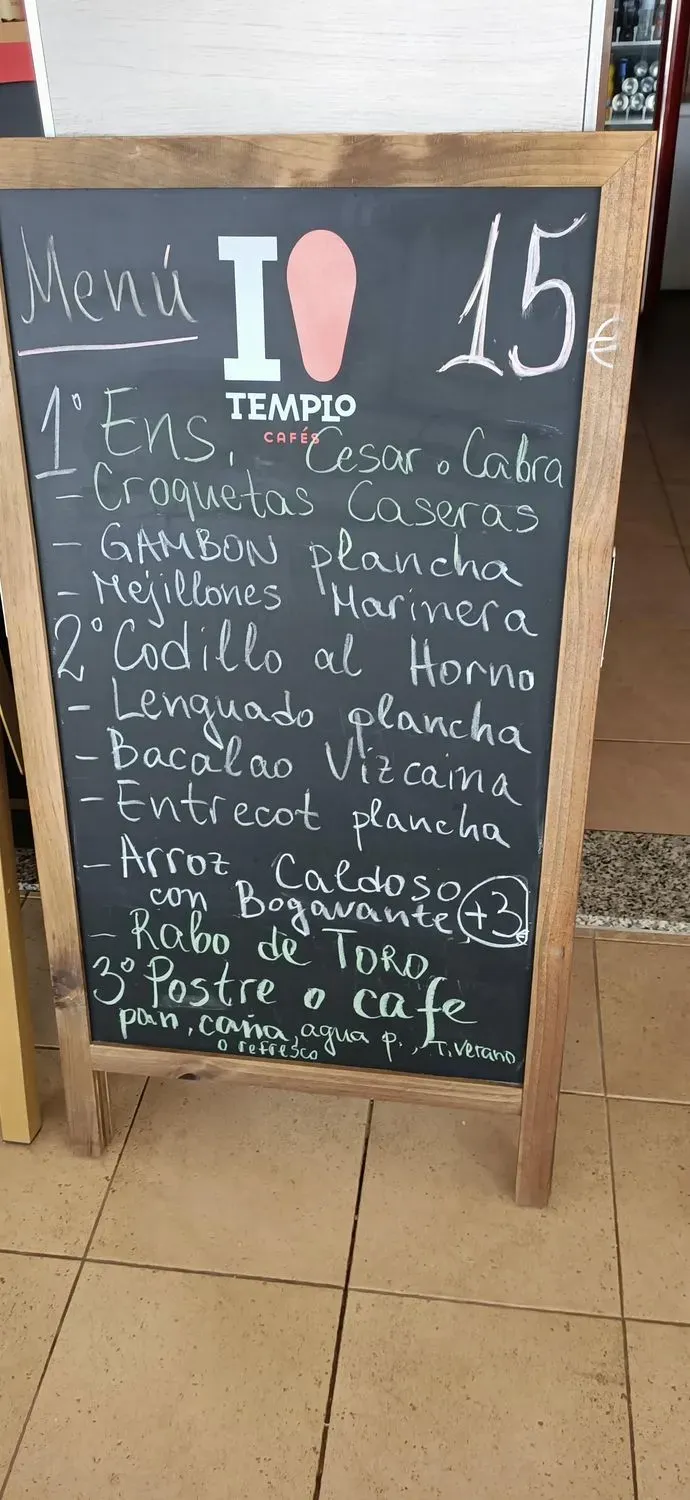 Menú
I
TEMPLO
CAFÉS
15€
1° Ens, Cesar o Cabra
- Croquetas Caseras
- GAMBON plancha
- Mejillones Marinera
2° Codillo al Horno
- Lenguado plancha
- Bacalao Vizcaina
- Entrecot plancha
- Arroz Caldoso
con Bogavante +3€
- Rabo de TORO
3° Postre o cafe
pan, caña, agua p., T. verano
o refresco